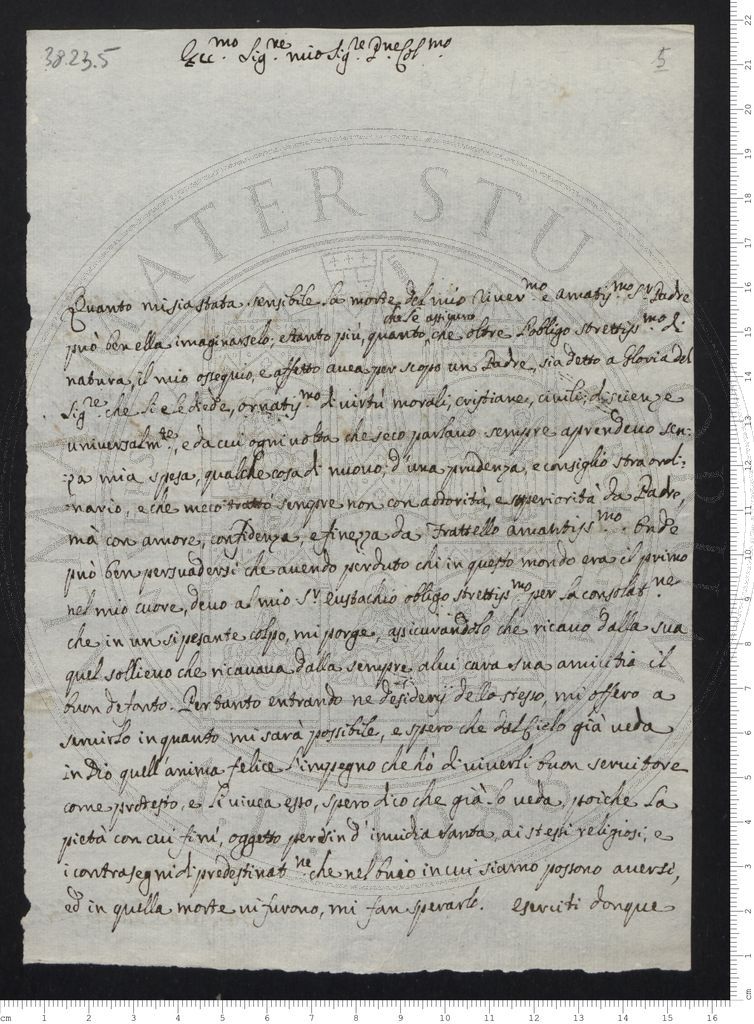 38.23.5
5
Ecc.mo Sig.re mio Sig.re P.ne Col.mo
Quanto mi sia stata sensibile la morte del mio River.mo e amatiss.mo S.r Padre
che Le assicuro
può ben ella imaginarselo; e tanto più, quanto che oltre l'obligo strettiss.mo di
natura, il mio ossequio, e affetto avea per scopo un Padre, sia detto a Gloria del
Sig.re che Si e le diede, ornatiss.mo di virtù morali, cristiane, civili, di scienze
universalm.te, e da cui ogni volta che seco parlavo sempre aprendevo sen:
:za mia spesa, qualche cosa di nuovo, d'una prudenza, e consiglio straordi:
:nario, e che meco trattò sempre non con autorità, e superiorità da Padre,
mà con amore, confidenza, e finezza da Frattello amantiss.mo. Onde
può ben persuadersi che avendo perduto chi in questo mondo era il primo
nel mio cuore, devo al mio S.r Eustachio obligo strettiss.mo per la consolat.ne
che in un si pesante colpo, mi porge, assicurandolo che ricavo dalla sua
quel sollievo che ricavava dalla sempre a lui cara sua amicitia il
buon defonto. Per tanto entrando ne desiderij dello stesso, mi offero a
servirlo in quanto mi sarà possibile, e spero che dal Cielo già veda
in Dio quell'anima felice l'impegno che hò di viverli buon servitore
come protesto, e Li vivea esso, spero dico che già lo veda, poiche la
pietà con cui finì, oggetto persin d'invidia santa, ai stessi religiosi, e
i contrasegni di predestinat.ne che nel buio in cui siamo possono aversi,
ed in quella morte vi furono, mi fan sperarlo. Eserciti donque
ALMA MATER STUDIORUM
A.D. 1088
cm
1 2 3 4 5 6 7 8 9 10 11 12 13 14 15 16
cm
1 2 3 4 5 6 7 8 9 10 11 12 13 14 15 16 17 18 19 20 21 22